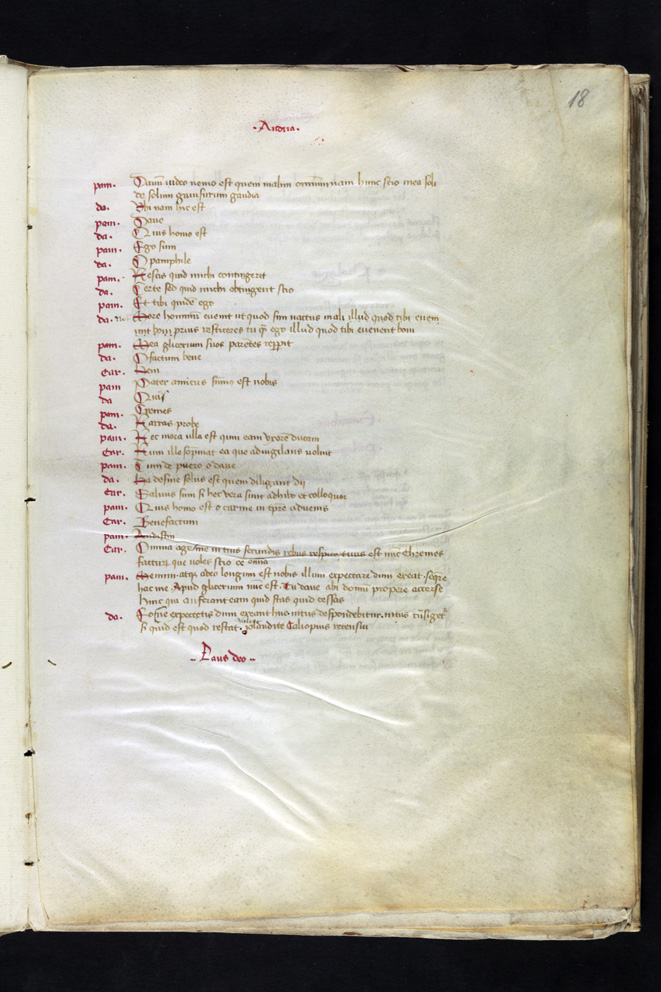 18
· Andria ·
pam. Daūm video nemo est quem malim omnium nam hunc scio mea soli
de solum gavisurum gaudia
da. Ubi nam hic est
pam. Dave
da. Quis homo est
pam. Ego sum
da. O pamphile
pam. Nescis quid michi contingerit
da. Certe sed quid michi obtingerit scio
pam. Et tibi quidē ego
da. More hominū evenit ut quod sim nactus mali illud quod tibi evenit
prius resciceres tu q̄ ego illud quod tibi evenerit boni
pam. Mea glicerium suos parētes repperit
da. O factum bene
Car. Hem
pam Pater amicus summus est nobis
da Quis
pam. Cremes
da. Narras probe
pam. Nec mora ulla est quin eam uxorē ducam
Car. Num ille sopniat ea que advigilans voluit
pam. Tum de puero o dave
da. Ha desine solus est quem diligant dii
Car. Salvus sum si hec vera sunt adhibo et colloquar
pam. Quis homo est o carine in tpre advenis
Car. Benefactum
pam. Audistin
Car. Omnia age me in tuis secundis rebus respice tuus est nūc chremes
facturū que voles scio ēē omnia
pam. Memini atqз adeo longum est nobis illum expectare dum exeat seqre
hac me Apud glicerium nūc est. Tu dave abi domū propere accerse
hinc qui auferant eam quid stas quid cessas
da. Eo ne expectetis dum exeant huc intus despondebitur. intus
si quid est quod restat. plaudite Caliopius recensui
Laus deo